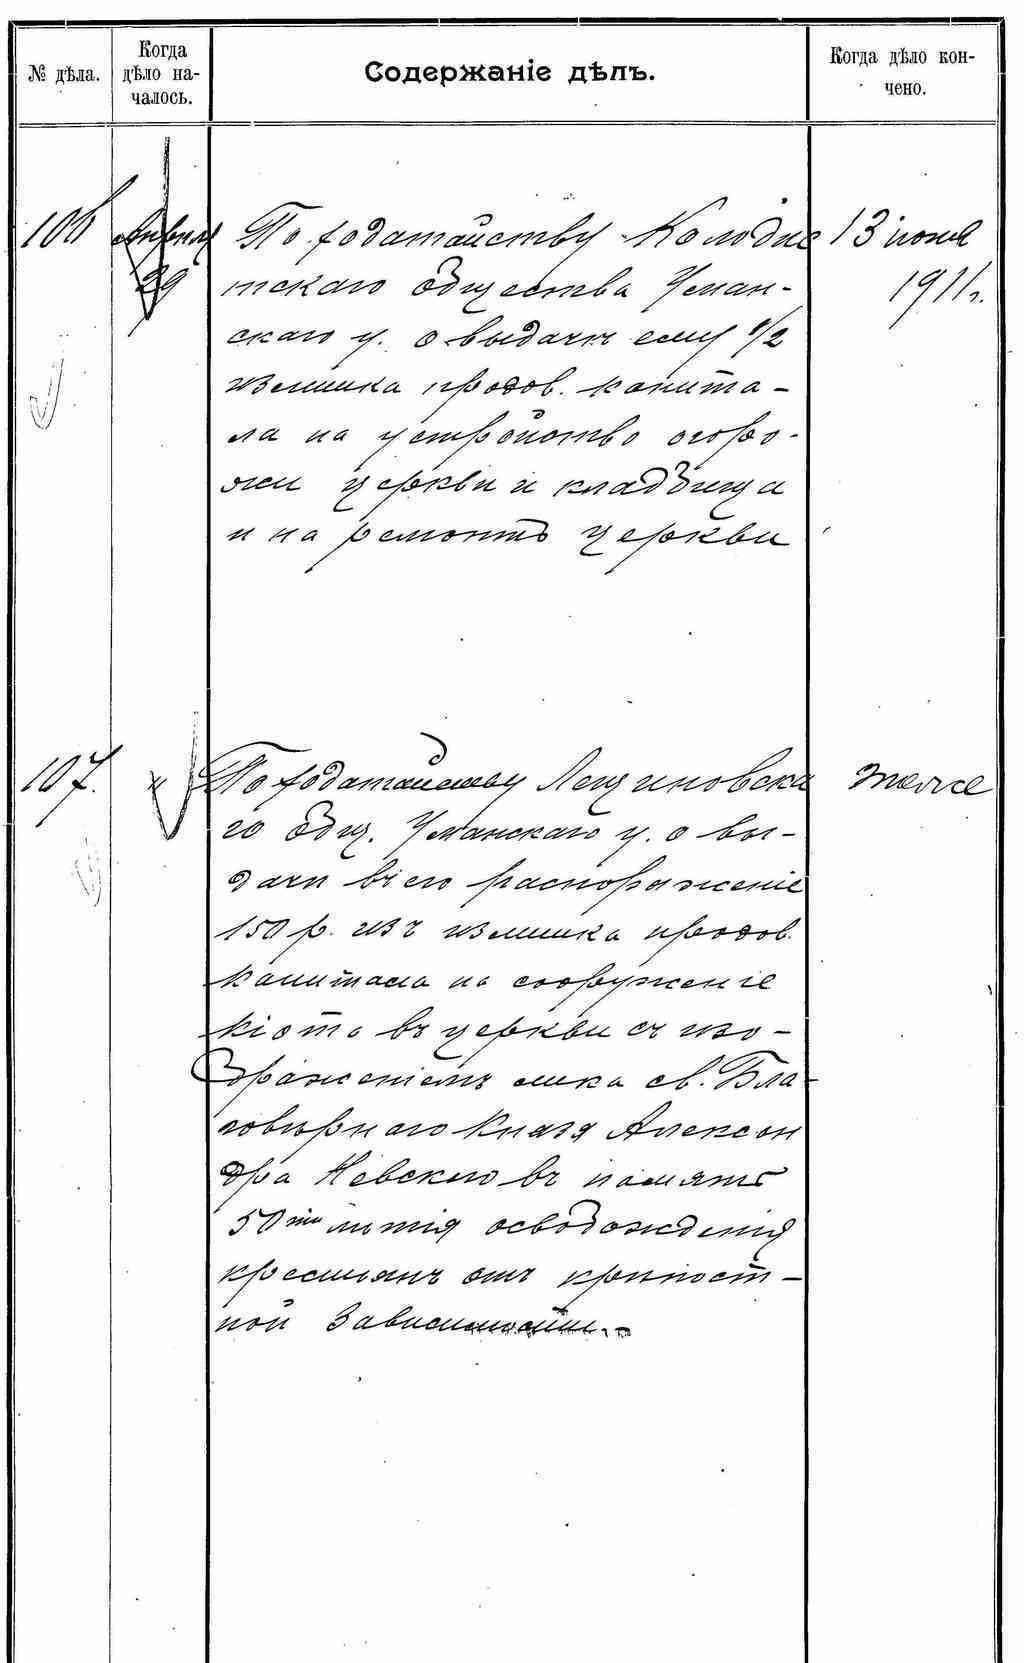 № дѣла.
Когда
дѣло на-
чалось.
Содержаніе дѣлъ.
Когда дѣло кон-
чено.
106
Апрѣля
29
По ходатайству Колодис
тскаго общества Уман-
скаго у. о выдачѣ ему 1/2
излишка продов. капита-
ла на устройство огоро-
жи церкви и кладбища
и на ремонтъ церкви
13 іюня
1911 г.
107.
"
По ходатайству Лещиновска
го общ. Уманскаго у. о вы-
дачѣ въ его распоряженіе
150 р. изъ излишка продов.
капитала на сооруженіе
кіота въ церкви съ изо-
браженіемъ лика св. Бла-
говѣрнаго Князя Алексан
дра Невскаго въ память
50ти лѣтія освобожденія
крестьянъ отъ крѣпост-
ной зависимости.-
тоже